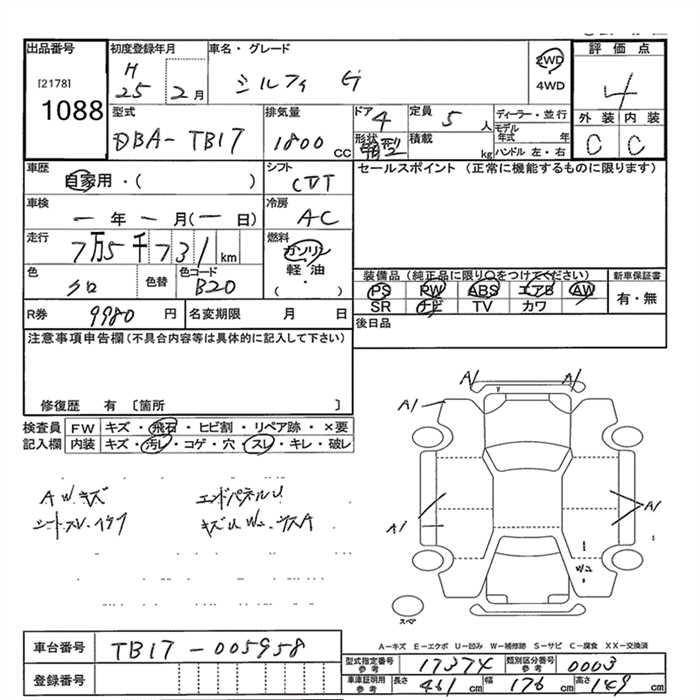 出品番号
[2178]
1088
初度登録年月
H 25 2月
車名・グレード
シルフィ G
2WD
4WD
評価点
4
外装 内装
C C
型式
DBA-TB17
排気量
1800 CC
ドア 4
形状 箱型
定員 5 人
積載 kg
ディーラー・並行
モデル年式 年
ハンドル 左・右
車歴
自家用・( )
シフト
CVT
セールスポイント (正常に機能するものに限ります)
車検
一年一月(一日)
冷房
AC
走行
7万5千731km
燃料
ガソリン
軽油
( ・ )
色
クロ
色替
色コード
B20
装備品 (純正品に限り○をつけてください)
PS PW ABS エアB AW
SR ナビ TV カワ
新車保証書
有・無
R券 9980 円
名変期限 月 日
後日品
注意事項申告欄(不具合内容等は具体的に記入して下さい)
修復歴 有 〔箇所 〕
検査員 FW キズ・飛石・ヒビ割・リペア跡・×要
記入欄 内装 キズ・汚レ・コゲ・穴・スレ・キレ・破レ
AWキズ
エンドパネルU
シートスレ
A1 A1
A1
A1
A1
W2
スペア
A-キズ E-エクボ U-凹み W-補修跡 S-サビ C-腐食 XX-交換済
車台番号 TB17-005958
登録番号
型式指定番号 参考 17374 類別区分番号 参考 0003
車庫証明用 参考 長さ 461 cm 幅 176 cm 高さ 149 cm